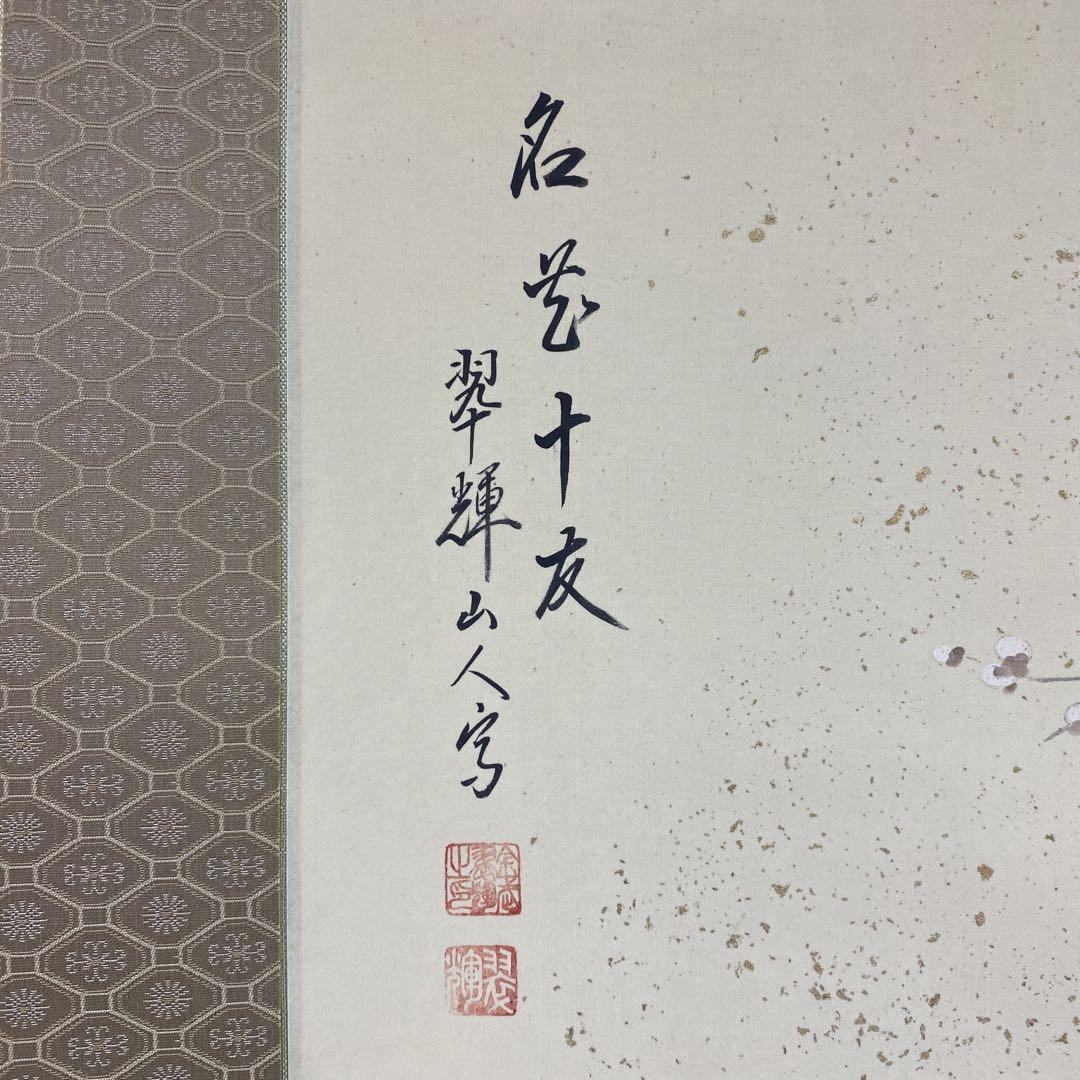 名花十友
翠輝山人写
翠輝